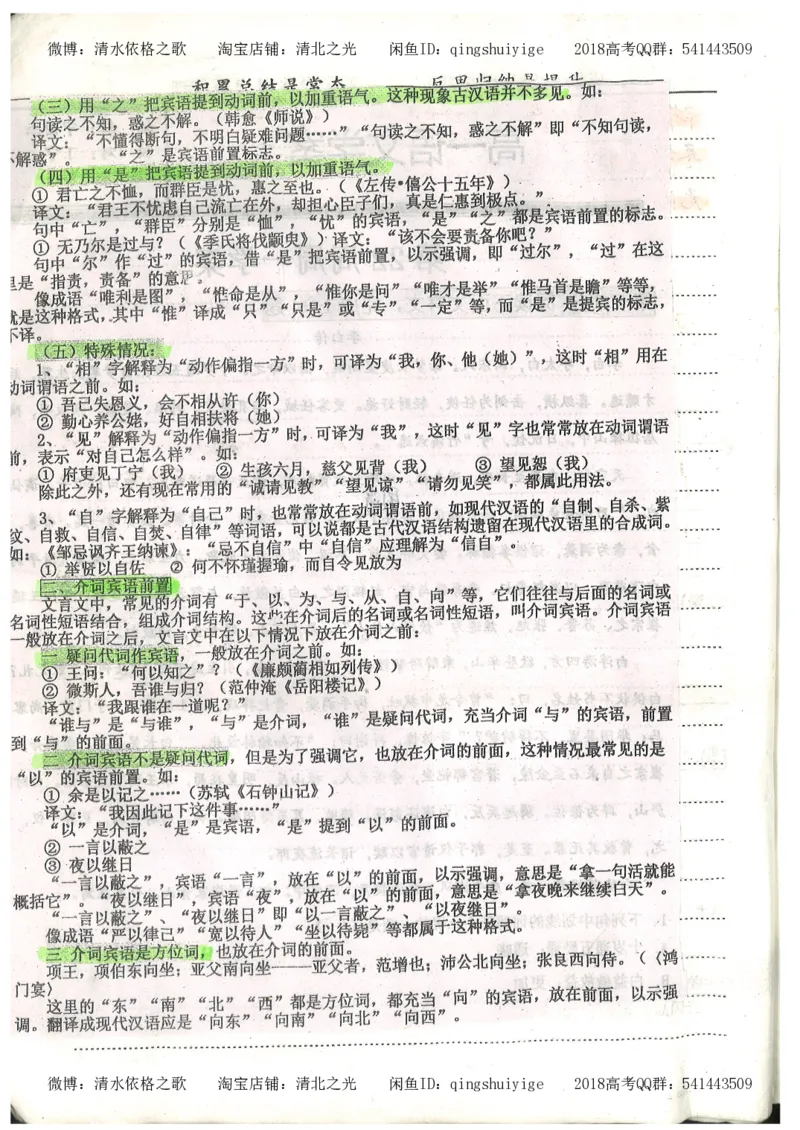 微博：清水依格之歌　　淘宝店铺：清北之光　　闲鱼ID：qingshuiyige　　2018高考QQ群：541443509
积累总结是常态　　　　反思归纳是提升
（三）用“之”把宾语提到动词前，以加重语气。这种现象古汉语并不多见。如：
句读之不知，惑之不解。（韩愈《师说》）
译文：“不懂得断句，不明白疑难问题……”“句读之不知，惑之不解”即“不知句读，
不解惑”。　　“之”是宾语前置标志。
（四）用“是”把宾语提到动词前，以加重语气。
① 君亡之不恤，而群臣是忧，惠之至也。（《左传•僖公十五年》）
译文：“君王不忧虑自己流亡在外，却担心臣子们，真是仁惠到极点。”
句中“亡”，“群臣”分别是“恤”，“忧”的宾语，“是”“之”都是宾语前置的标志。
① 无乃尔是过与？（《季氏将伐颛臾》）译文：“该不会要责备你吧？”
句中“尔”作“过”的宾语，借“是”把宾语前置，以示强调，即“过尔”，“过”在这
里是“指责，责备”的意思。
像成语“唯利是图”，“惟命是从”，“惟你是问”“唯才是举”“惟马首是瞻”等等，
就是这种格式，其中“惟”译成“只”“只是”或“专”“一定”等，而“是”是提宾的标志，
不译。
（五）特殊情况：
1、“相”字解释为“动作偏指一方”时，可译为“我，你、他（她）”，这时“相”用在
动词谓语之前。如：
① 吾已失恩义，会不相从许（你）
② 勤心养公姥，好自相扶将（她）
2、“见”解释为“动作偏指一方”时，可译为“我”，这时“见”字也常常放在动词谓语
前，表示“对自己怎么样”。如：
① 府吏见丁宁（我）　② 生孩六月，慈父见背（我）　③ 望见恕（我）
除此之外，还有现在常用的“诚请见教”“望见谅”“请勿见笑”，都属此用法。
3、“自”字解释为“自己”时，也常常放在动词谓语前，如现代汉语的“自制、自杀、紫
纹、自救、自信、自焚、自律”等词语，可以说都是古代汉语结构遗留在现代汉语里的合成词。
如：《邹忌讽齐王纳谏》：“忌不自信”中“自信”应理解为“信自”。
① 举贤以自佐　② 何不怀瑾握瑜，而自令见放为
二、介词宾语前置
文言文中，常见的介词有“于、以、为、与、从、自、向”等，它们往往与后面的名词或
名词性短语结合，组成介词结构。这些在介词后的名词或名词性短语，叫介词宾语。介词宾语
一般放在介词之后，文言文中在以下情况下放在介词之前：
一 疑问代词作宾语，一般放在介词之前。如：
① 王问：“何以知之”？（《廉颇蔺相如列传》）
② 微斯人，吾谁与归？（范仲淹《岳阳楼记》）
译文：“我跟谁在一道呢？”
“谁与”是“与谁”，“与”是介词，“谁”是疑问代词，充当介词“与”的宾语，前置
到“与”的前面。
二 介词宾语不是疑问代词，但是为了强调它，也放在介词的前面，这种情况最常见的是
“以”的宾语前置。如：
① 余是以记之……（苏轼《石钟山记》）
译文：“我因此记下这件事……”
“以”是介词，“是”是宾语，“是”提到“以”的前面。
② 一言以蔽之
③ 夜以继日
“一言以蔽之”，宾语“一言”，放在“以”的前面，以示强调，意思是“拿一句活就能
概括它”。“夜以继日”，宾语“夜”，放在“以”的前面，意思是“拿夜晚来继续白天”。
“一言以蔽之”、“夜以继日”即“以一言蔽之”、“以夜继日”。
像成语“严以律己”“宽以待人”“坐以待毙”等都属于这种格式。
三 介词宾语是方位词，也放在介词的前面。
项王，项伯东向坐；亚父南向坐——亚父者，范增也；沛公北向坐；张良西向侍。（〈鸿
门宴〉
这里的“东”“南”“北”“西”都是方位词，都充当“向”的宾语，放在前面，以示强
调。翻译成现代汉语应是“向东”“向南”“向北”“向西”。
微博：清水依格之歌　　淘宝店铺：清北之光　　闲鱼ID：qingshuiyige　　2018高考QQ群：541443509